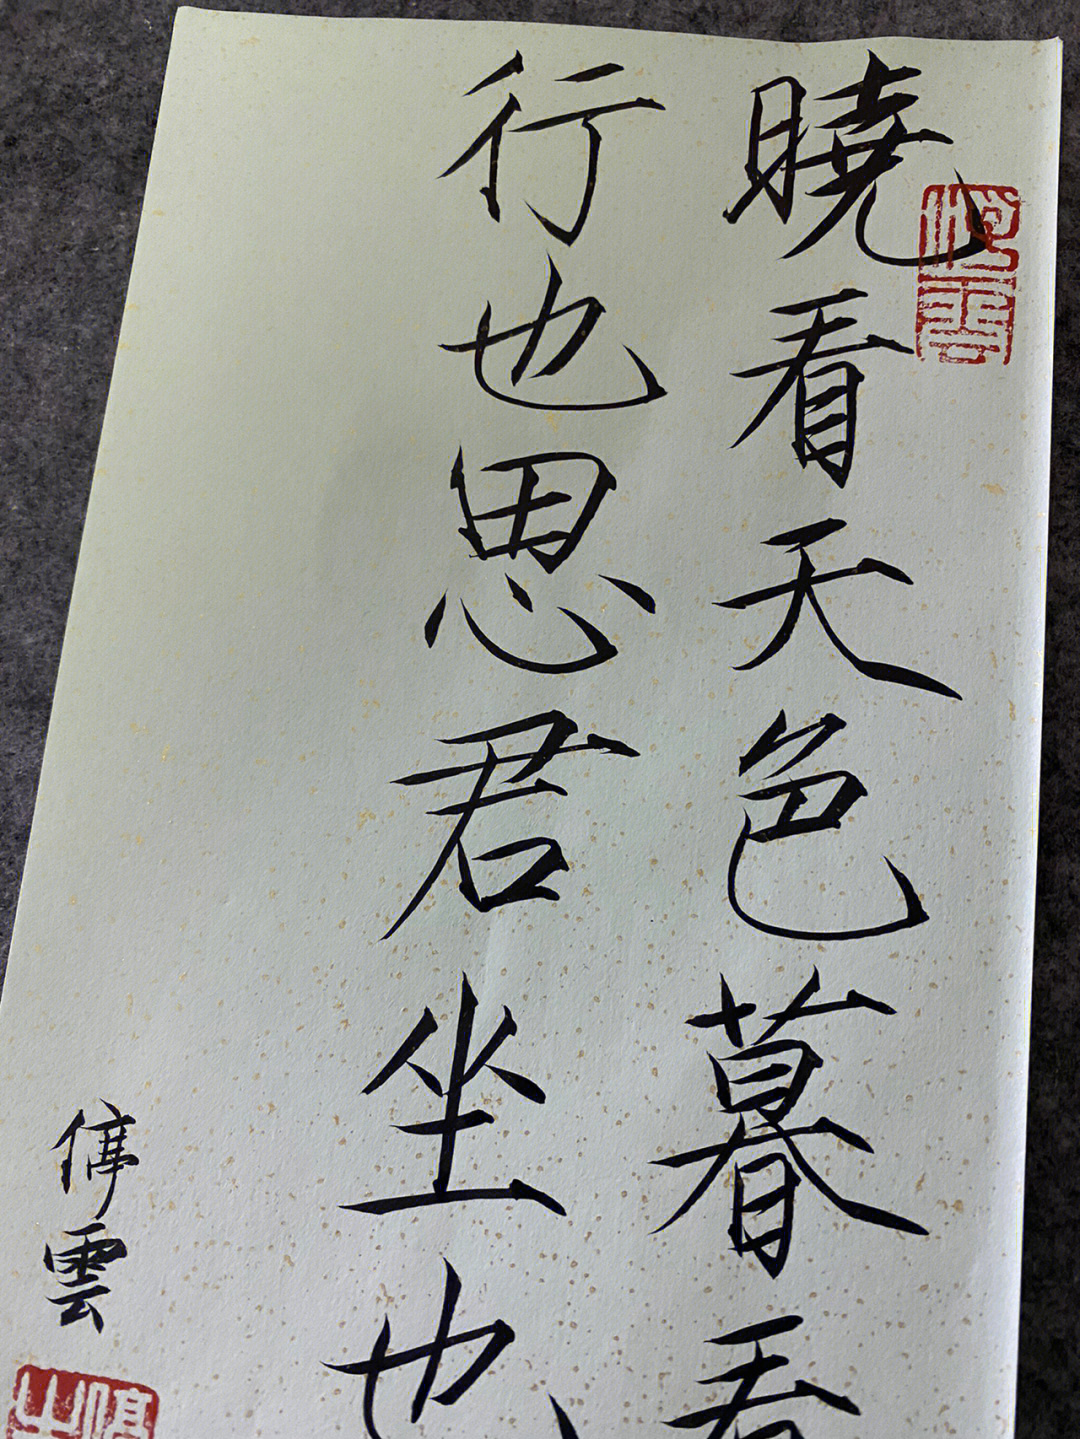 曉看天色暮看
行也思君坐也
停雲
停雲